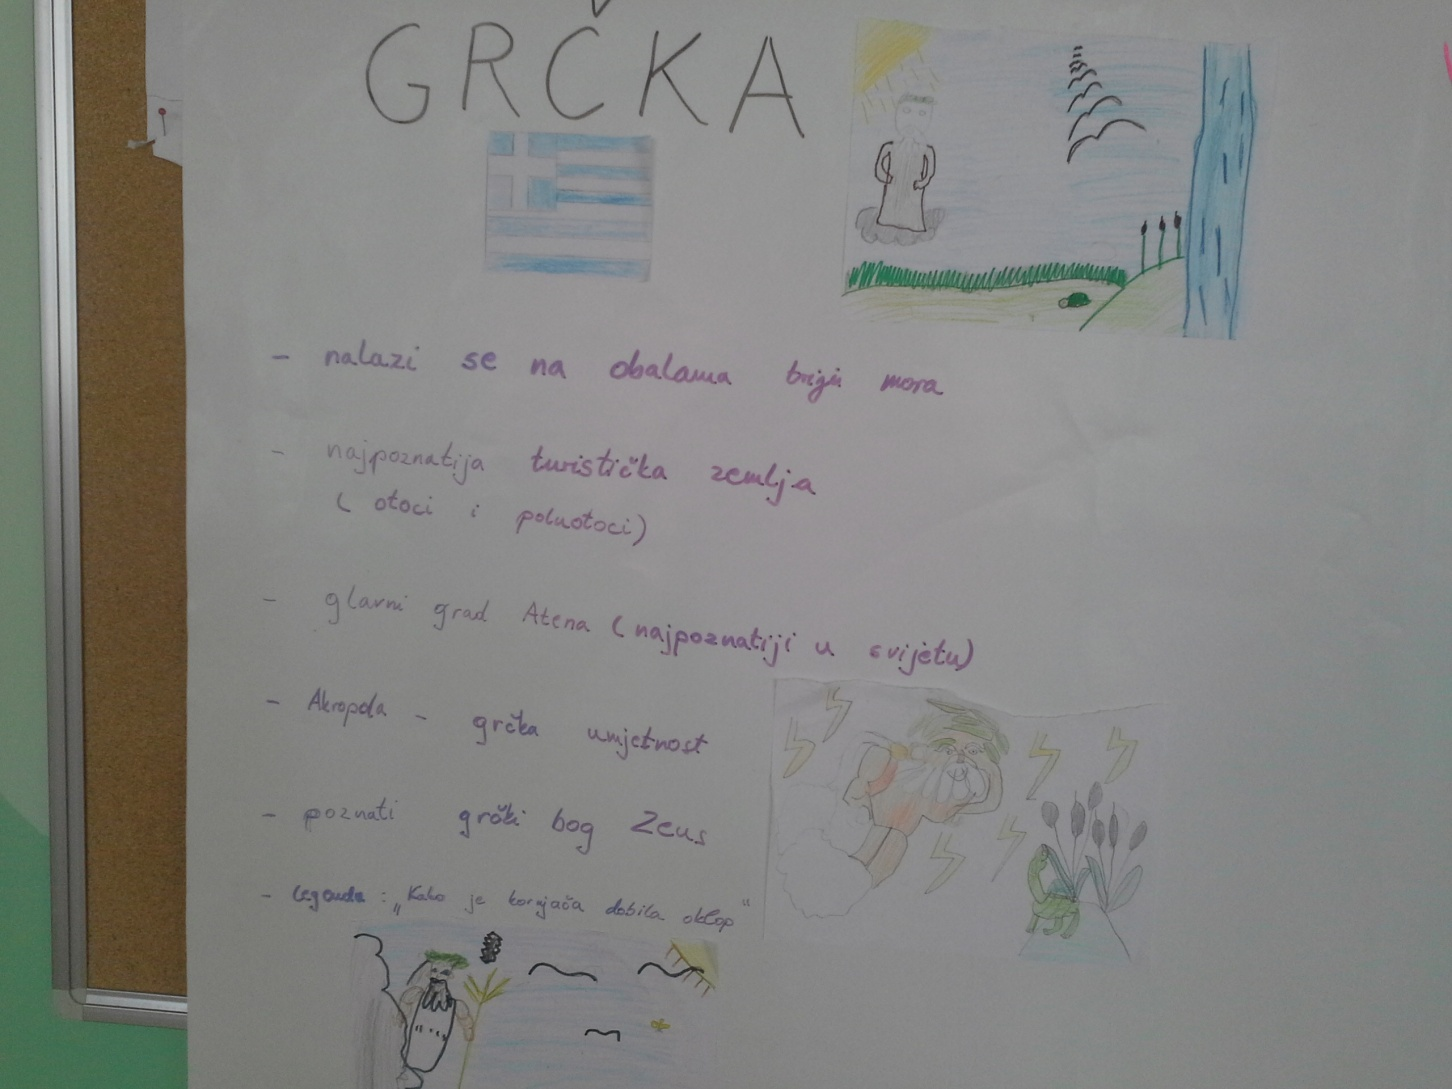 GRČKA
- nalazi se na obalama mora
- najpoznatija turistička zemlja
( otoci i poluotoci)
- glavni grad Atena (najpoznatiji u svijetu)
- Akropola - grčka umjetnost
- poznati grčki bog Zeus
- Legenda : „Kako je kornjača dobila oklop“